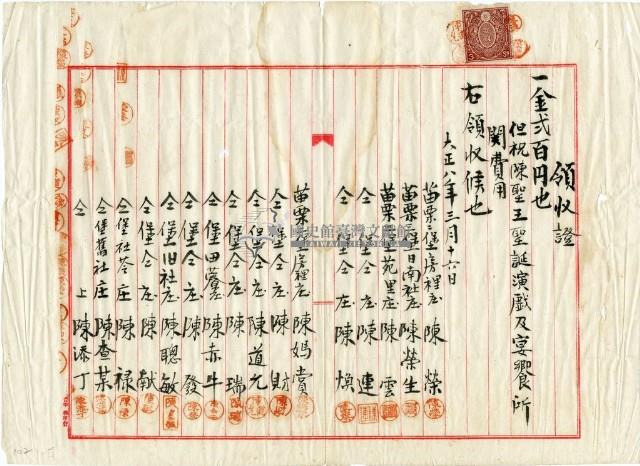 領收證
一金弍百円也
但祝陳聖王聖誕演戲及宴饗所
関費用
右領收候也
大正八年三月十六日
苗栗二堡房裡庄 陳榮
苗栗二堡日南社庄 陳榮生
苗栗二堡苑里庄 陳雲
仝堡仝庄 陳連
仝堡仝庄 陳煥
苗栗二堡房裡庄 陳媽賞
仝堡仝庄 陳財
仝堡仝庄 陳道允
仝堡仝庄 陳瑞
仝堡田藔庄 陳赤牛
仝堡仝庄 陳發
仝堡旧社庄 陳聰敏
仝堡仝庄 陳献
仝堡社苓庄 陳祿
仝堡舊社庄 陳查某
仝 上 陳添丁
國史館臺灣文獻館
TAIWAN HISTORICA